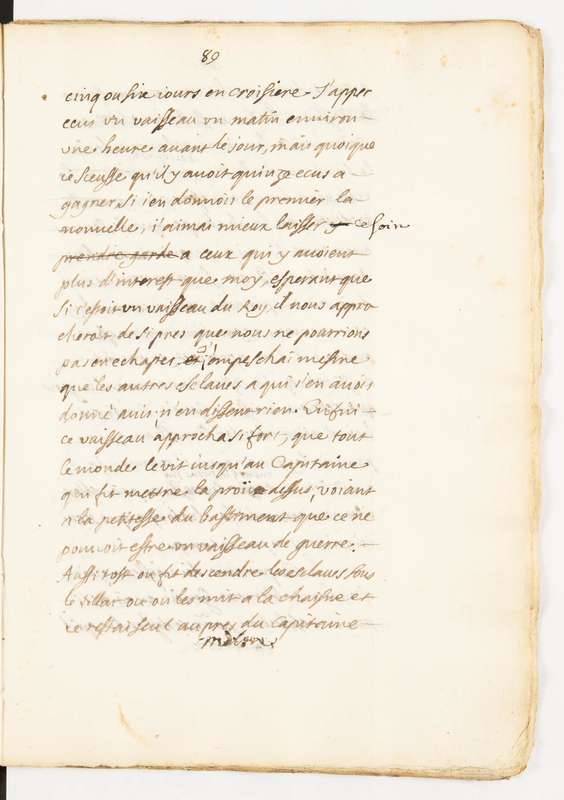 89
cinq ou six iours en croisiere. J'apper
ceus un vaisseau un matin environ
une heure auant le jour, mais quoique
ie sceusse qu'il y avoit quinze ecus a
gagner si i'en donnois le premier la
nouuelle, i'aimai mieux laisser y ce soin
prendre garde a ceux qui y auoient
plus d'interest que moy, esperant que
si c'estoit un vaisseau du Roy, il nous appro
cheroit de si pres que nous ne pourrions
pas en echaper et i'empeschai mesme
que les autres esclaves a qui i'en auois
donné auis, n'en dissent rien. Enfin
ce vaisseau approcha si fort, que tout
le monde le vit iusqu'au Capitaine
qui fit mettre la proüe dessus, voiant
a la petitesse du bastiment que ce ne
pouuoit estre un vaisseau de guerre.
Aussi tost on fit descendre les esclaves sous
le tillac ou on les mit a la chaisne et
ie restai seul aupres du Capitaine